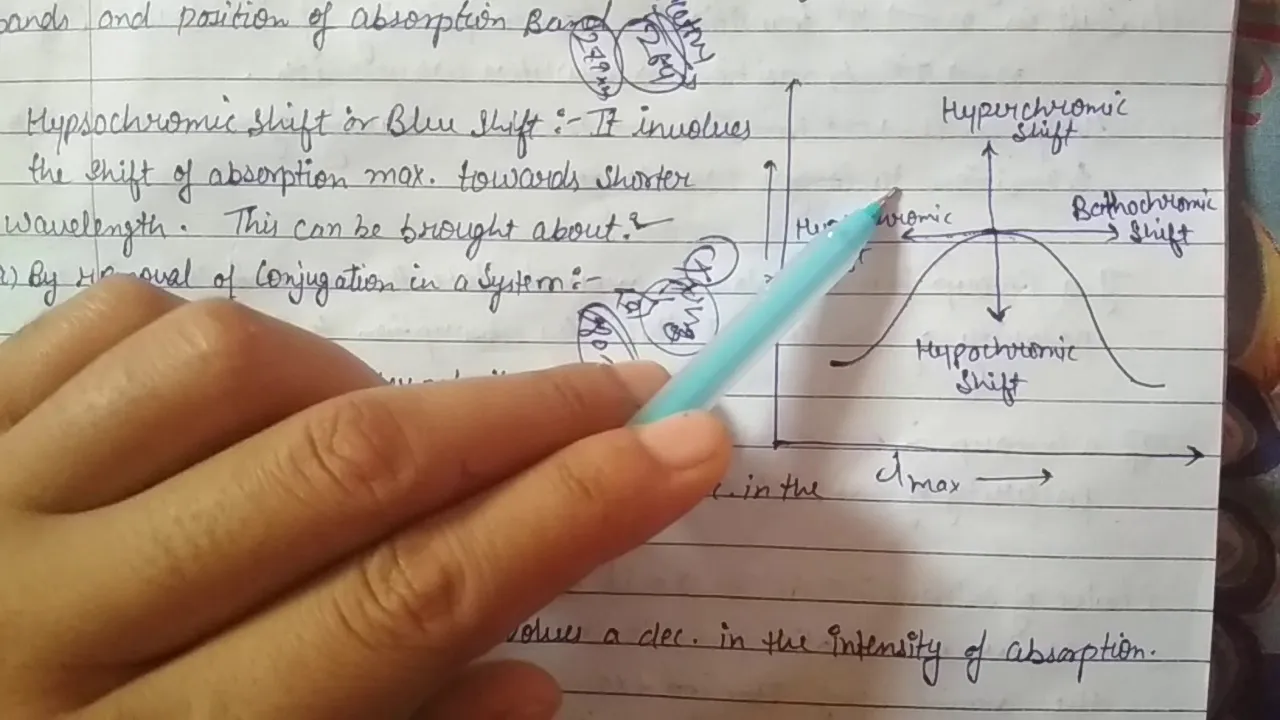 bands and position of absorption Band
Hypsochromic Shift or Blue Shift :- It involves
the shift of absorption max. towards shorter
wavelength. This can be brought about :-
By Removal of Conjugation in a System :-
Hyperchromic
Shift
Bathochromic
Shift
Hypochromic
Shift
max
in the
a dec. in the intensity of absorption.